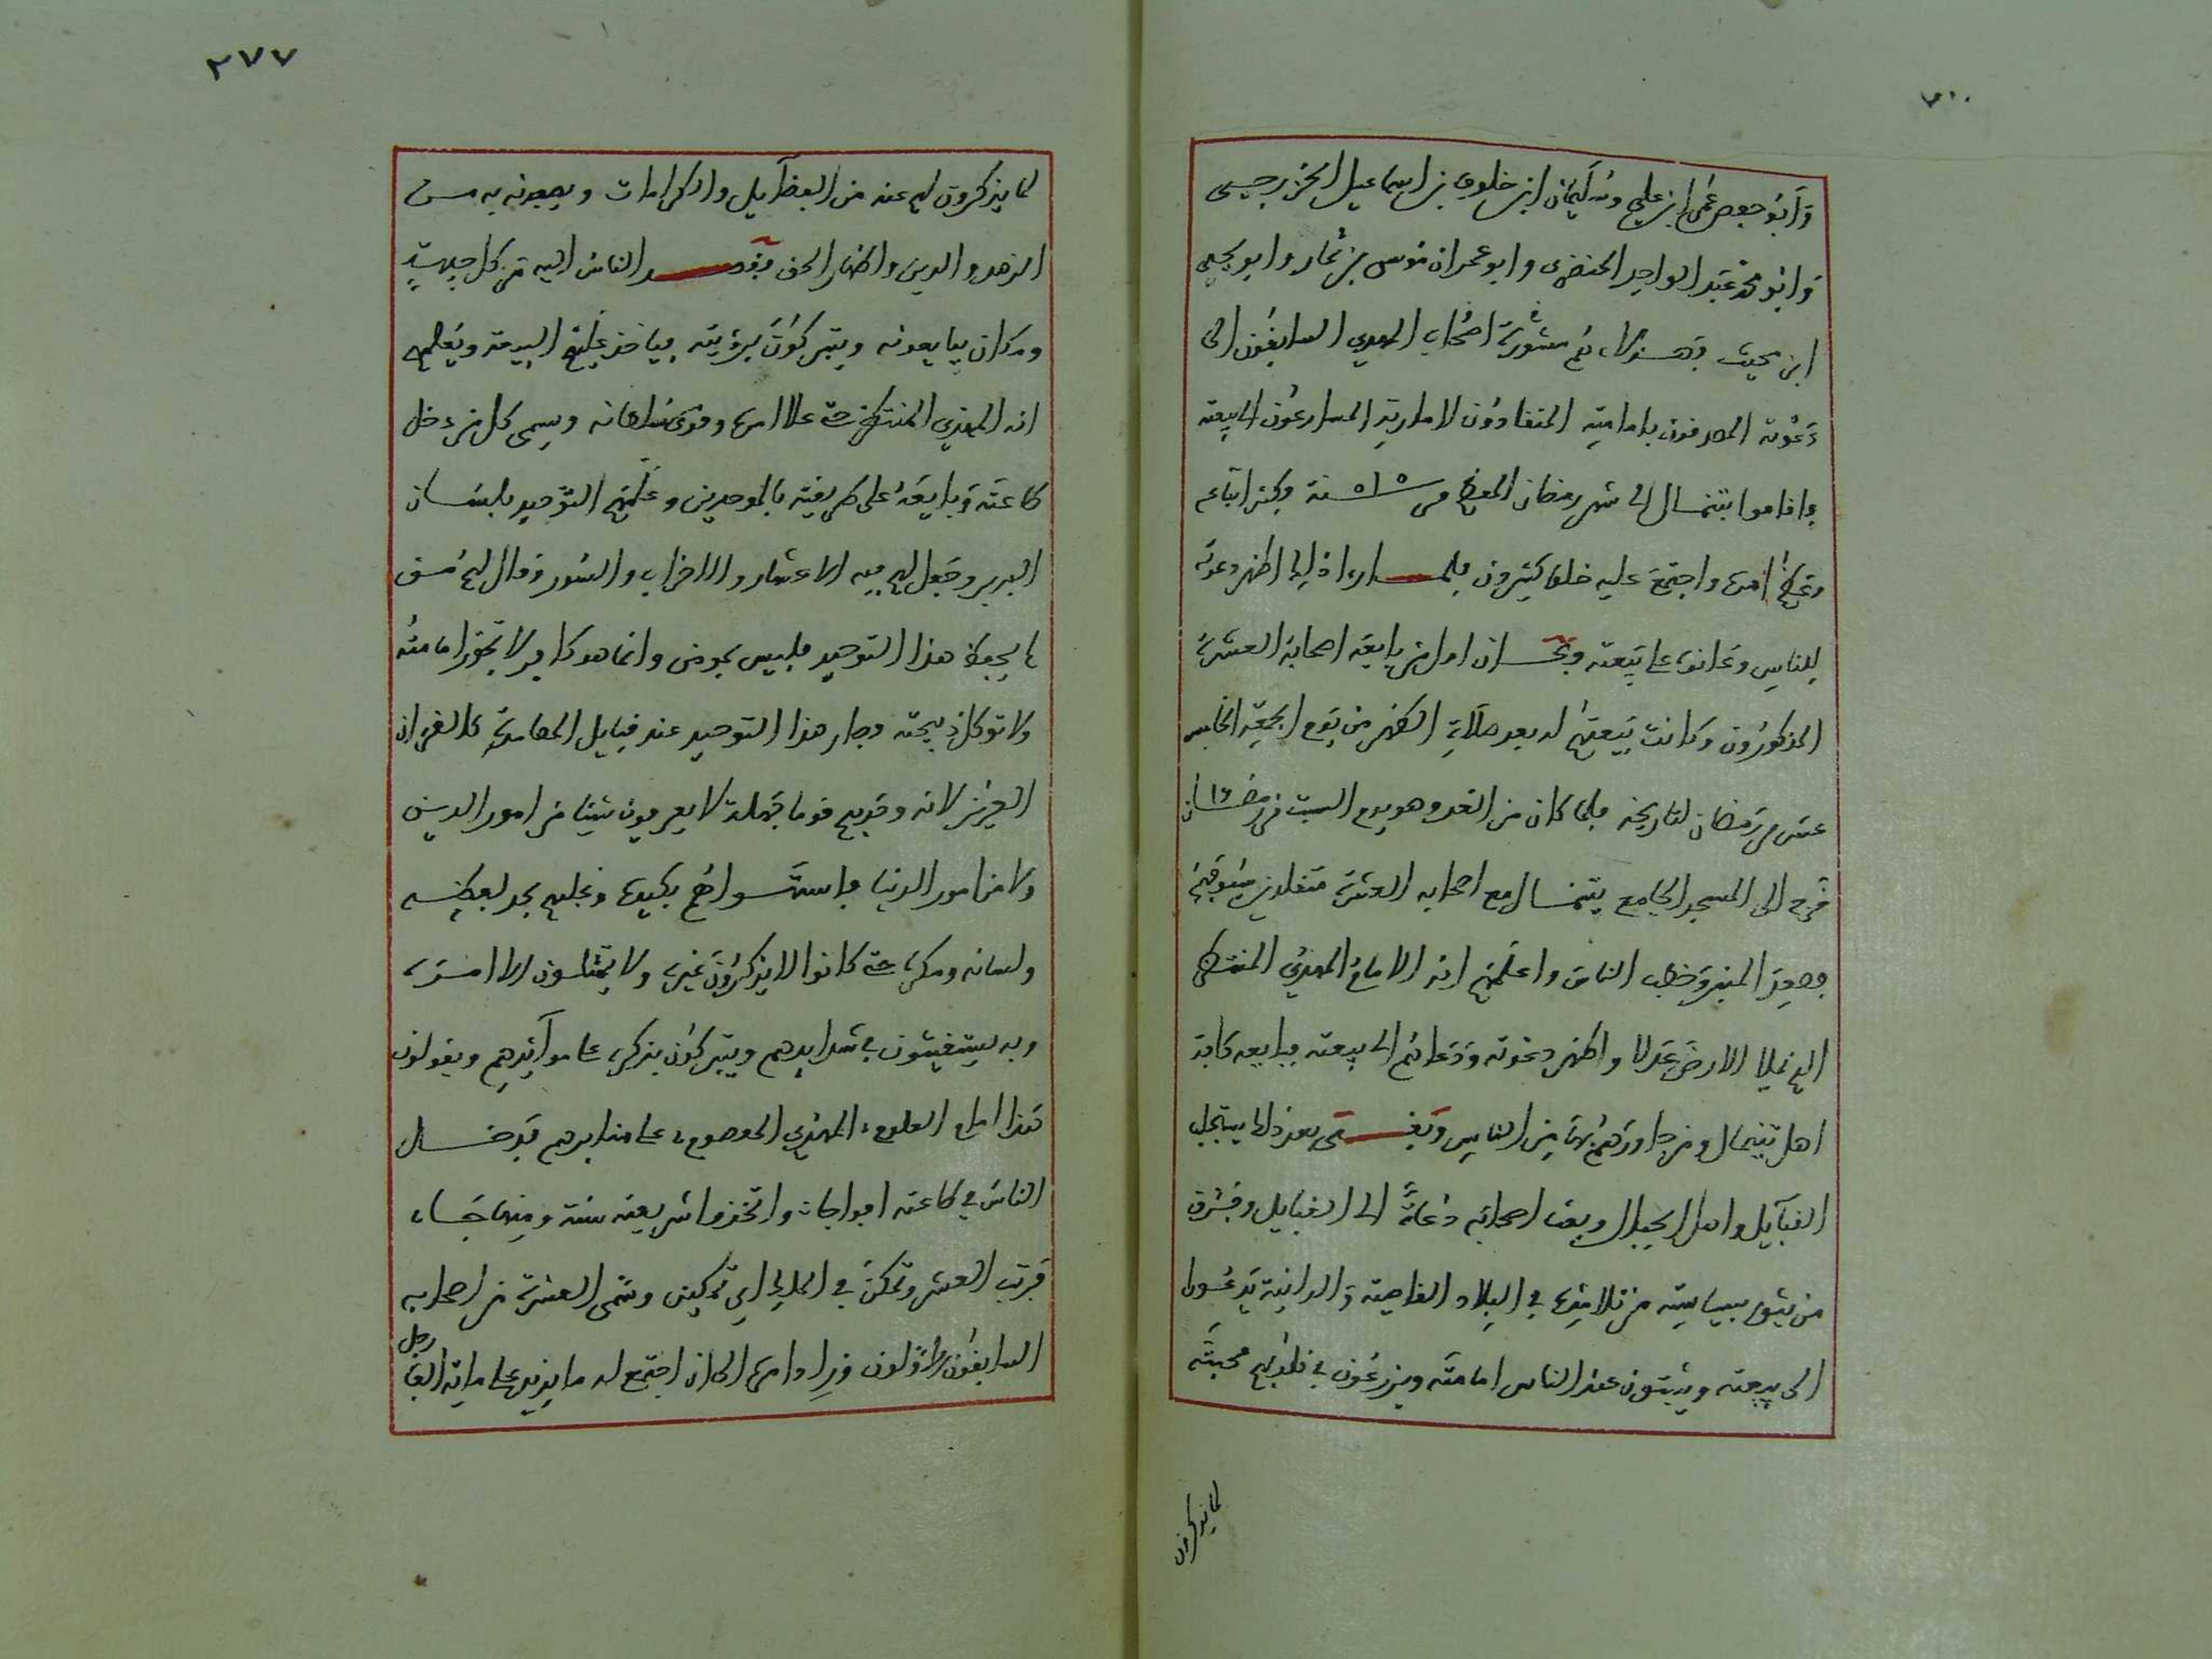 وابو حفص عمر ابن علي وسليمان ابن خلوف بن اسماعيل الخزرجي
وابو محمد عبد الواحد الحضري وابو عمران موسى بن تمار وابو يحيى
ابن بحيث فهولاء هم عشرة اصحاب المهدي السابقون الى
دعوته المصدقون بامامته المنقادون لامارته المسارعون الى بيعته
واقاموا بتينمال الى شهر رمضان المعظم من ٥١٥ سنة وكثر اتباعه
وعظم امره واجتمع عليه خلق كثيرون فلما راء ذلك اظهر دعوته
للناس ودعا الى بيعته وكان اول من بايعه اصحابه العشرة
المذكورون وكانت بيعتهم له بعد صلاة الظهر من يوم الجمعة الخامس
عشر من رمضان لتاريخه فلما كان من الغد وهو يوم السبت من رمضان ١٦
خرج الى المسجد الجامع بتينمال مع اصحابه العشرة متقلدين سيوفهم
وصعد المنبر وخطب الناس واعلمهم انه الامام المهدي المنتظر
الذي يملا الارض عدلا واظهر دعوته ودعاهم الى بيعته فبايعه كافة
اهل تينمال ومن جاورهم بها من الناس وبقي بعد ذلك يستجلب
القبايل واهل الجبال وبعث اصحابه دعاة الى القبايل وفرق
من يثق بسياسته من تلاميذه في البلاد القاصية والدانية يدعوا
الى بيعته ويثبتون عند الناس امامته ويزرعون في قلوبهم محبته
لما يذكرون
٢٧٧
لما يذكرون لهم عنه من الفضايل والكرامات ويصفونه به من
الزهد والدين واظهار الحق فقصد الناس اليه من كل جهة
وكان يبايعونه ويتبركون برؤيته فياخذ عليهم البيعة ويعلمهم
انه المهدي المنتظر حتى علا امره وقوى سلطانه ويسمى كل من دخل
طاعته وبايعه على طريقته بالموحدين وعلمهم التوحيد بلسان
البربر وجعل لهم فيه الاعشار والاحزاب والسور وقال لهم من
لا يحفظ هذا التوحيد فليس بمومن وانما هو كافر لا تجوز امامته
ولا توكل ذبيحته وصار هذا التوحيد عند قبايل المصامدة كالقران
العزيز لانه وجدهم قوما جهلة لا يعرفون شيئا من امور الدين
ولا من امور الدنيا فاستهواهم بكيده وجلبهم بحد لفظه
ولسانه ومكره حتى كانوا لا يذكرون غيره ولا يمتثلون الا امره
وبه يستغيثون في شدايدهم ويتبركون بذكره على موايدهم ويقولون
هذا امام المعلوم، المهدي المعصوم، على منابرهم فدخل
الناس في طاعته افواجا، واتخذوا شريعته سنة ومنهاجا،
فرتب العشر وتمكن في الملك اي تمكين وسمى العشرة من اصحابه
السابقون الاولون وزاد امره الى ان اجتمع له ما يزيد على ماية الف رجل